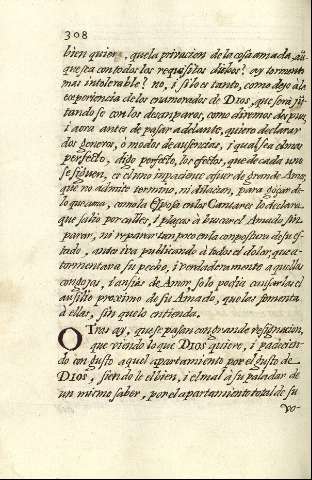 308
bien quiere, que la privacion de la cosa amada, aũ-
que sea con todos los requisitos dichos? ay tormento
mas intolerable? no, i si lo es tanto, como dejo à la
experiencia de los enamorados de DIOS, que serà jũ-
tandose con los desamparos, como diremos despues,
i aora antes de pasar adelante, quiero declarar
dos generos, ò modos de ausencias, i qual sea el mas
perfecto, digo perfecto, los efectos, que de cada uno
se siguen, es el uno impaciente ofuer de grande Amor,
que no admite termino, ni dilacion, para gozar de
lo que ama, como la Esposa en los Cantares lo declara,
que salio por calles, i plaças à buscar el Amado sin
parar, ni reparar tampoco en la compostura de su es-
tado, antes iva publicando à todos el dolor, que a-
tormentava su pecho, i verdaderamente aquellas
congojas, i ansias de Amor, solo podia causarlas el
ausilio proximo de su Amado, que las fomenta
à ellas, sin que lo entienda.
OTras ay, que se pasan con grande resignacion,
que viendo lo que DIOS quiere, i padecien-
do con gusto aquel apartamiento por el gusto de
DIOS, siendole el bien, i el mal à su paladar de
un mismo saber, por el apartamiento total de su
vo-